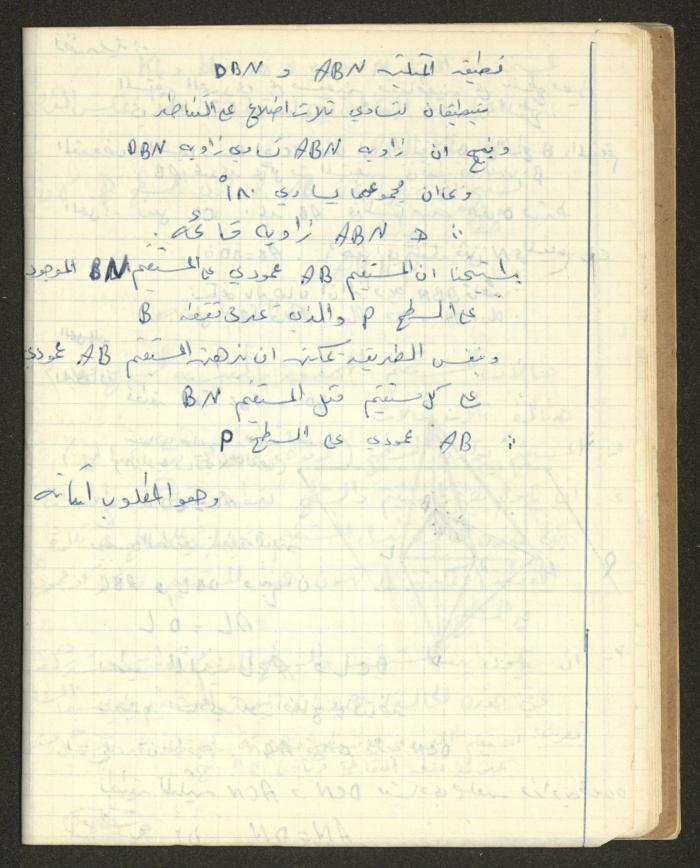 نطبق المثلثين ABN و DBN
ينطبقان لتساوي ثلاث اضلاع على التناظر
وينتج ان زاويه ABN تساوي زاويه DBN
وبما ان مجموعهما يساوي ١٨٠°
∴ ABN زاويه قائمه.
ان المستقيم AB عمودي على المستقيم BN الموجود
على السطح P والذي عدى نقطة B
وبنفس الطريقه يمكن ان نبرهن المستقيم AB عمودي
على كل مستقيم مثل المستقيم BN
∴ AB عمودي على السطح P
وهو المطلوب اثباته